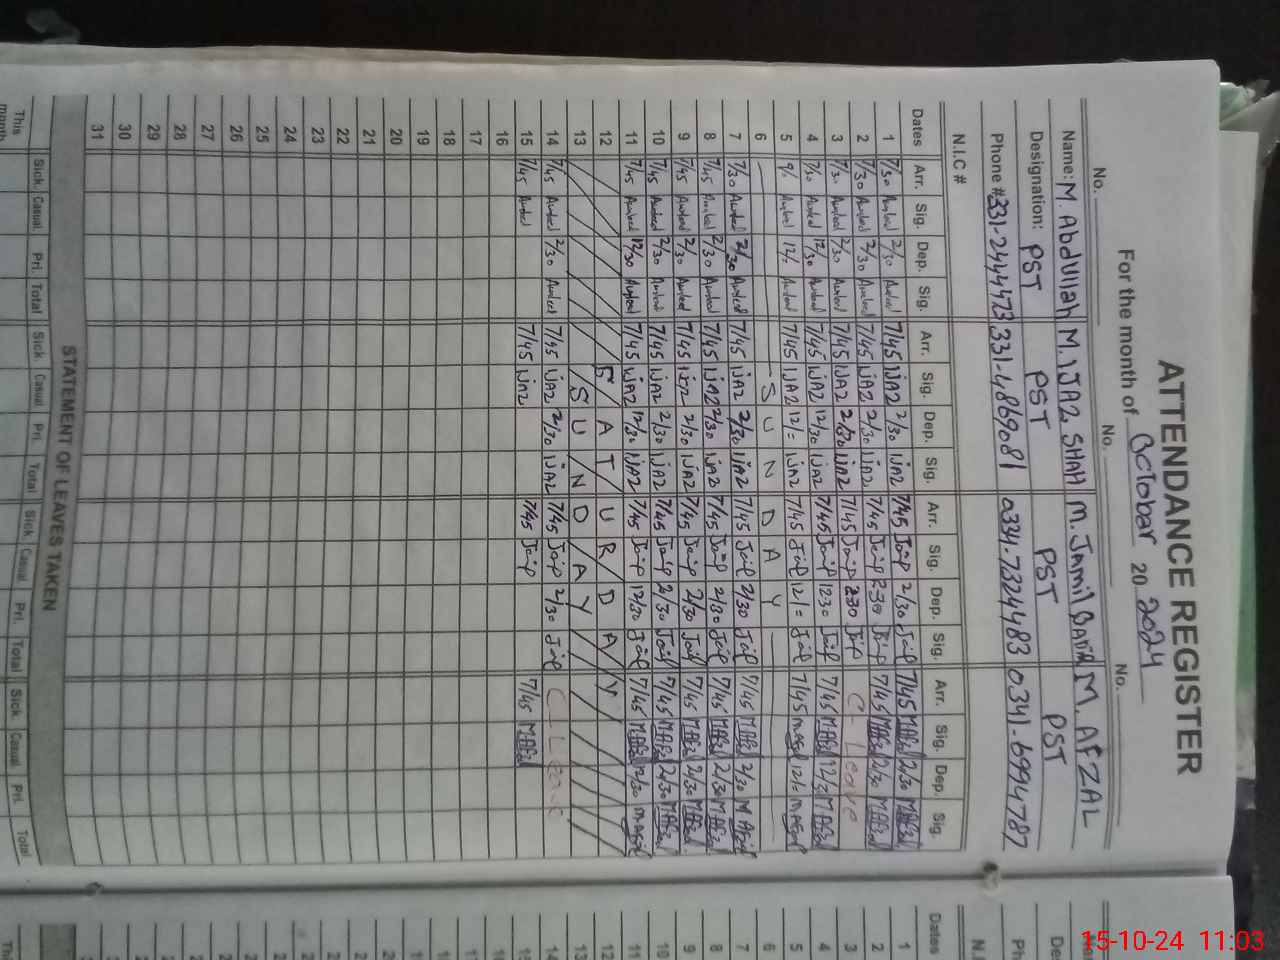 ATTENDANCE REGISTER
For the month of Octobar 20 2024
No. No. No.
Name: M. Abdullah M. IJAZ SHAH M. Jamil BADAR M. AFZAL
Designation: PST PST PST PST
Phone # 331-2444473 331-4869081 0334-7324483 0341-6994787
N.I.C #
Dates Arr. Sig. Dep. Sig. Arr. Sig. Dep. Sig. Arr. Sig. Dep. Sig. Arr. Sig. Dep. Sig.
1 7/30 2/30 7/45 IJAZ 2/30 IJAZ 7/45 Jamil 2/30 Jamil 7/45 M.Afzal 2/30 M.Afzal
2 7/30 2/30 7/45 IJAZ 2/30 IJAZ 7/45 Jamil 230 Jamil 7/45 M.Afzal 2/30 M.Afzal
3 7/30 2/30 7/45 IJAZ 2/30 IJAZ 7/45 Jamil 230 Jamil C- Leave
4 7/30 12/30 7/45 IJAZ 12/30 IJAZ 7/45 Jamil 1230 Jamil 7/45 M.Afzal 12/3 M.Afzal
5 12/= 7/45 IJAZ 12/= IJAZ 7/45 Jamil 12/= Jamil 7/45 M.Afzal 12/= M.Afzal
6 SUNDAY
7 7/30 2/30 7/45 IJAZ 2/30 IJAZ 7/45 Jamil 2/30 Jamil 7/45 M.Afzal 2/30 M.Afzal
8 7/45 2/30 7/45 IJAZ 2/30 IJAZ 7/45 Jamil 2/30 Jamil 7/45 M.Afzal 2/30 M.Afzal
9 7/45 2/30 7/45 IJAZ 2/30 IJAZ 7/45 Jamil 2/30 Jamil 7/45 M.Afzal 2/30 M.Afzal
10 7/45 2/30 7/45 IJAZ 2/30 IJAZ 7/45 Jamil 2/30 Jamil 7/45 M.Afzal 2/30 M.Afzal
11 7/45 12/30 7/45 IJAZ 12/30 IJAZ 7/45 Jamil 12/30 Jamil 7/45 M.Afzal 12/30 M.Afzal
12 SATURDAY
13 SUNDAY
14 7/45 2/30 7/45 IJAZ 2/30 IJAZ 7/45 Jamil 2/30 Jamil C-Leave
15 7/45 7/45 IJAZ 7/45 Jamil 7/45 M.Afzal
16
17
18
19
20
21
22
23
24
25
26
27
28
29
30
31
STATEMENT OF LEAVES TAKEN
Sick. Casual. Pri. Total Sick. Casual Pri. Total Sick. Casual. Pri. Total Sick Casual Pri. Total
This month
Dates
1
2
3
4
5
6
7
8
9
10
11
15-10-24 11:03